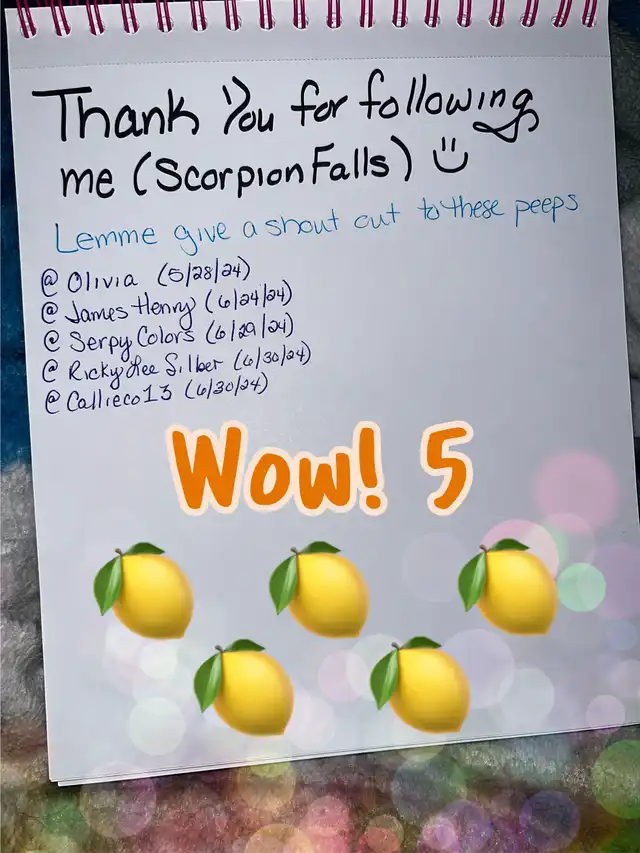 Thank You for following
me (Scorpion Falls) :)
Lemme give a shout out to these peeps
@ Olivia (5/28/24)
@ James Henry (6/24/24)
@ Serpy Colors (6/29/24)
@ Ricky Lee Silber (6/30/24)
@ Callieco13 (6/30/24)
Wow! 5